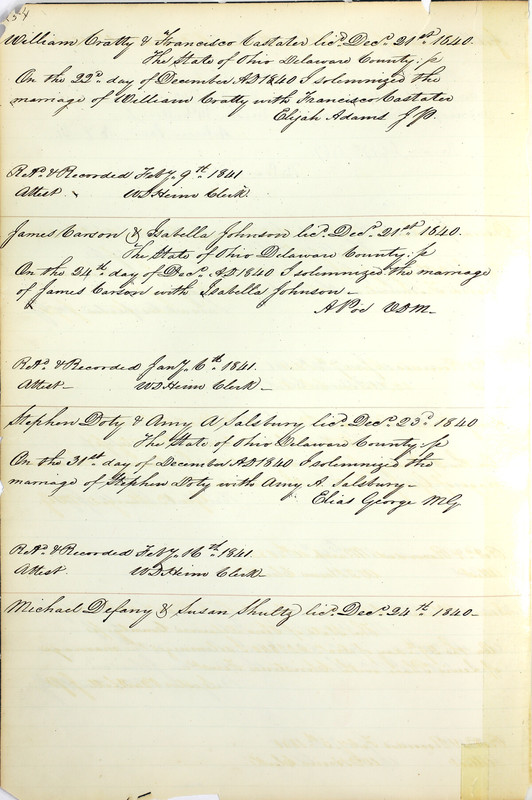 254
William Cratty & Francisco Castater lic.d Dec.r 21st 1840.
The State of Ohio Delaware County: ss
On the 22d day of December AD 1840 I solemnized the
marriage of William Cratty with Francisco Castater
Elijah Adams J P.
Ret.d & Recorded Feby. 9th 1841
Attest. W D Heim Clerk.
James Carson & Isabella Johnson lic.d Dec.r 21st 1840.
The State of Ohio Delaware County: ss
On the 24th day of Dec.r AD 1840 I solemnized the marriage
of James Carson with Isabella Johnson –
A Poe V D M –
Ret.d & Recorded Jany. 6th 1841.
Attest – W D Heim Clerk –
Stephen Doty & Amy A Salsbury lic.d Dec.r 23d 1840
The State of Ohio Delaware County: ss
On the 31st day of December AD 1840 I solemnized the
marriage of Stephen Doty with Amy A. Salsbury –
Elias George M G
Ret.d & Recorded Feby. 16th 1841.
Attest. W D Heim Clerk –
Michael Defany & Susan Shultz lic.d Dec.r 24th 1840 –